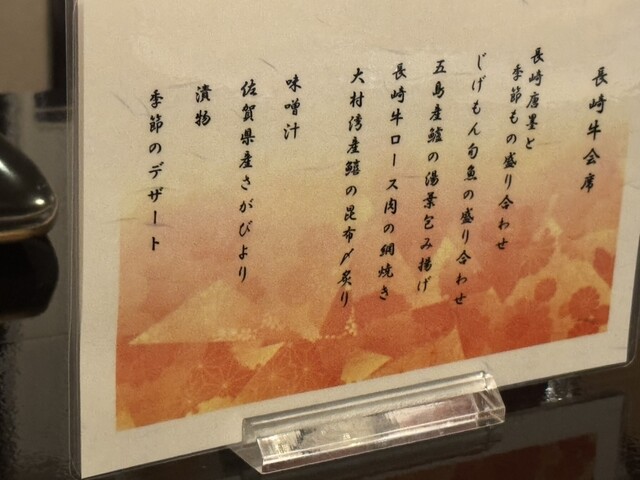 長崎牛会席
長崎唐墨と
季節もの盛り合わせ
じげもん旬魚の盛り合わせ
五島産鱸の湯葉包み揚げ
長崎牛ロース肉の網焼き
大村湾産鱚の昆布〆炙り
味噌汁
佐賀県産さがびより
漬物
季節のデザート